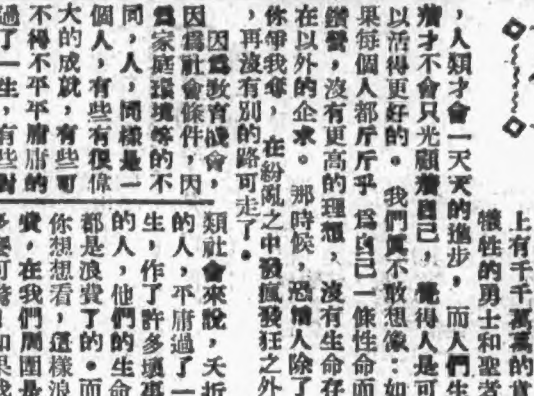 上有千千萬萬的肯
犧牲的勇士和聖者
，人類才會一天天的進步，而人們生
着才不會只光顧着自己，覺得人是可
以活得更好的。我們真不敢想像：如
果每個人都斤斤乎爲自己一條性命而
鑽營，沒有更高的理想，沒有生命存
在以外的企求。那時候，恐怕人除了
你爭我奪，在紛亂之中發瘋發狂之外
，再沒有別的路可走了。
因爲教育機會，
因爲社會條件，因
爲家庭環境等的不
同，人，同樣是一
個人，有些有很偉
大的成就，有些可
不得不平平庸庸的
過了一生，有些對
類社會來說，夭折
的人，平庸過了一
生，作了許多壞事
的人，他們的生命
都是浪費了的。而
你想想看，這樣浪
費，在我們周圍是
多麼可驚！如果我